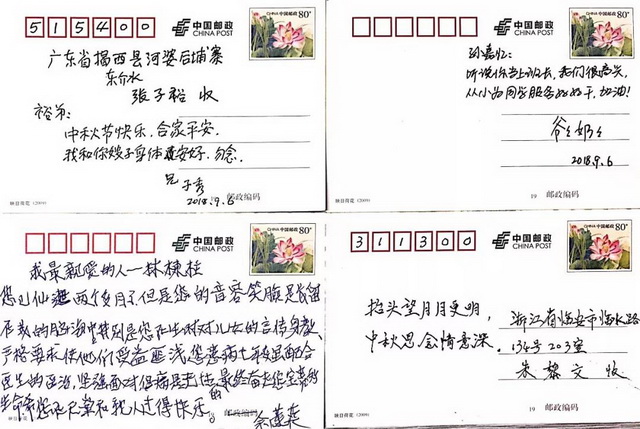 515400
中国邮政
CHINA POST
80分
广东省揭西县河婆后埔寨
张子裕 收
裕弟:
中秋节快乐,合家平安。
我和你嫂子身体安好,勿念。
兄 子秀
2018.9.6
映日荷花 (2009)
邮政编码
中国邮政
CHINA POST
80分
孙嘉忆:
听说你当上班长,我们很高兴
从小为同学服务好好干,加油!
爷爷奶奶
2018.9.6
19 邮政编码
中国邮政
CHINA POST
80分
我最亲爱的人一林栋柱
您已仙逝两个多月了但是您的音容笑脸
在我的脑海中特别是您在生时对儿女的言传身教
严格要求使他们受益匪浅
医生的医治,坚强面对
余莲葉
映日荷花 (2009)
邮政编码
311300
中国邮政
CHINA POST
80分
抬头望月月更明,
中秋思念情意深。
浙江省临安市临水路
134号203室
朱黎文 收
19 邮政编码